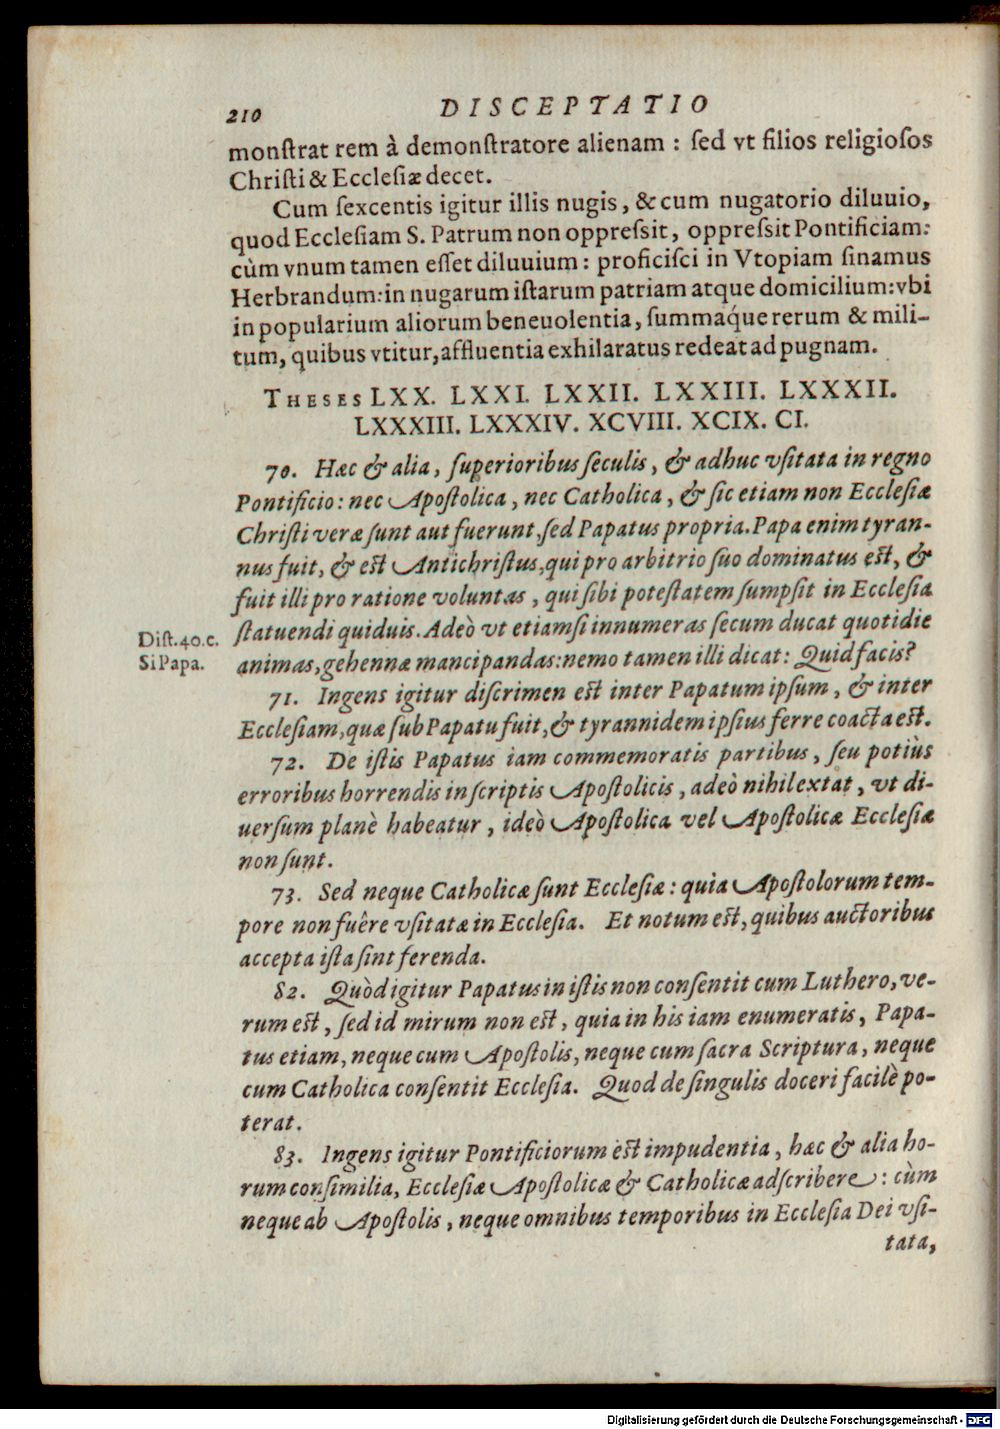 210
DISCEPTATIO
monſtrat rem à demonſtratore alienam : ſed vt filios religioſos
Chriſti & Eccleſiæ decet.
Cum ſexcentis igitur illis nugis, & cum nugatorio diluuio,
quod Eccleſiam S. Patrum non oppreſsit, oppreſsit Pontificiam:
cùm vnum tamen eſſet diluuium : proficiſci in Vtopiam ſinamus
Herbrandum: in nugarum iſtarum patriam atque domicilium: vbi
in popularium aliorum beneuolentia, ſummaq́ue rerum & mili-
tum, quibus vtitur, affluentia exhilaratus redeat ad pugnam.
THESES LXX. LXXI. LXXII. LXXIII. LXXXII.
LXXXIII. LXXXIV. XCVIII. XCIX. CI.
70. Hæc & alia, ſuperioribus ſeculis, & adhuc vſitata in regno
Pontificio: nec Apoſtolica, nec Catholica, & ſic etiam non Eccleſiæ
Chriſti veræ ſunt aut fuerunt, ſed Papatus propria. Papa enim tyran-
nus fuit, & eſt Antichriſtus, qui pro arbitrio ſuo dominatus eſt, &
fuit illi pro ratione voluntas, qui ſibi poteſtatem ſumpſit in Eccleſia
ſtatuendi quiduis. Adeò vt etiamſi innumeras ſecum ducat quotidie
Diſt. 40. c.
Si Papa.
animas, gehennæ mancipandas: nemo tamen illi dicat: Quid facis?
71. Ingens igitur diſcrimen eſt inter Papatum ipſum, & inter
Eccleſiam, quæ ſub Papatu fuit, & tyrannidem ipſius ferre coacta eſt.
72. De iſtis Papatus iam commemoratis partibus, ſeu potiùs
erroribus horrendis in ſcriptis Apoſtolicis, adeò nihil extat, vt di-
uerſum planè habeatur, ideò Apoſtolica vel Apoſtolicæ Eccleſiæ
non ſunt.
73. Sed neque Catholicæ ſunt Eccleſiæ: quia Apoſtolorum tem-
pore non fuêre vſitatæ in Eccleſia. Et notum eſt, quibus auctoribus
accepta iſta ſint ferenda.
82. Quòd igitur Papatus in iſtis non conſentit cum Luthero, ve-
rum eſt, ſed id mirum non eſt, quia in his iam enumeratis, Papa-
tus etiam, neque cum Apoſtolis, neque cum ſacra Scriptura, neque
cum Catholica conſentit Eccleſia. Quod de ſingulis doceri facilè po-
terat.
83. Ingens igitur Pontificiorum eſt impudentia, hæc & alia ho-
rum conſimilia, Eccleſiæ Apoſtolicæ & Catholicæ adſcribere: cùm
neque ab Apoſtolis, neque omnibus temporibus in Eccleſia Dei vſi-
tata,
Digitalisierung gefördert durch die Deutsche Forschungsgemeinschaft - DFG